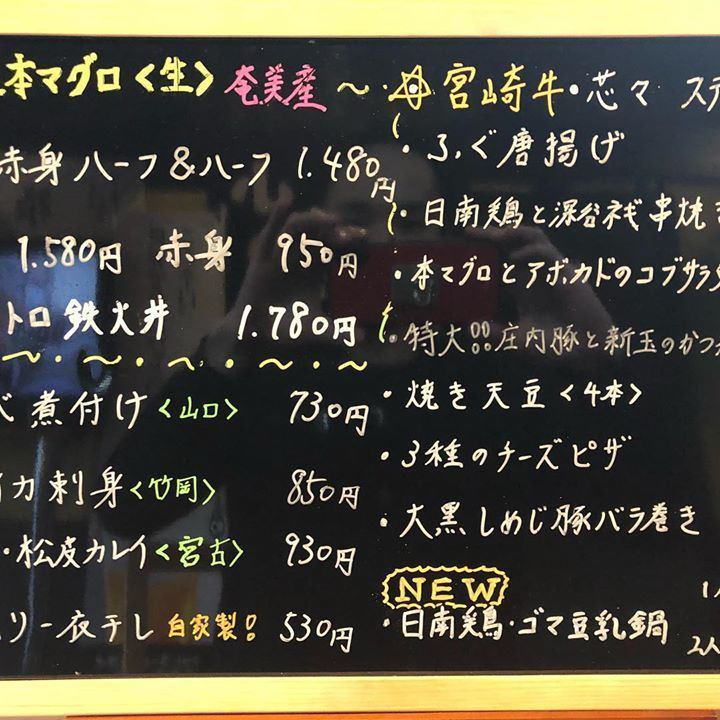 本マグロ〈生〉奄美産
赤身ハーフ&ハーフ 1.480円
1.580円 赤身 950円
トロ鉄火丼 1.780円
煮付け〈山口〉 730円
イカ刺身〈竹岡〉 850円
・松皮カレイ〈宮古〉 930円
リ一夜干し 自家製! 530円
宮崎牛・芯々 ステ
・ふぐ唐揚げ
・日南鶏と深谷ネギ串焼
・本マグロとアボカドのコブサラダ
・特大!!庄内豚と新玉のかつ
・焼き天豆〈4本〉
・3種のチーズピザ
・大黒しめじ豚バラ巻き
NEW
・日南鶏・ゴマ豆乳鍋
2人